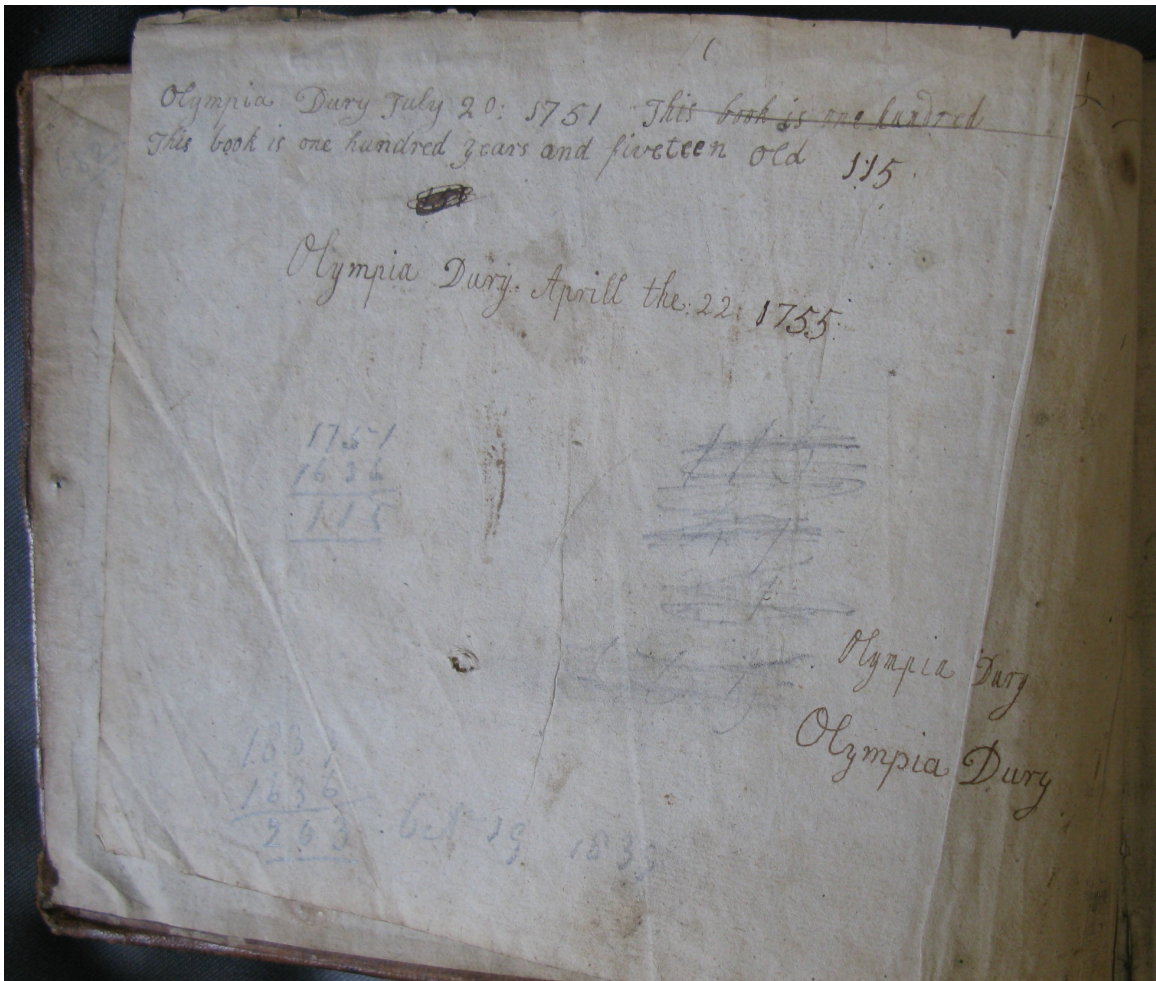 Olympia Dury July 20: 1751 This book is one hundred
This book is one hundred years and fiveteen old 115
Olympia Dury. Aprill the: 22: 1755:
1751
1636
115
Olympia Dury
Olympia Dury
1636
1833